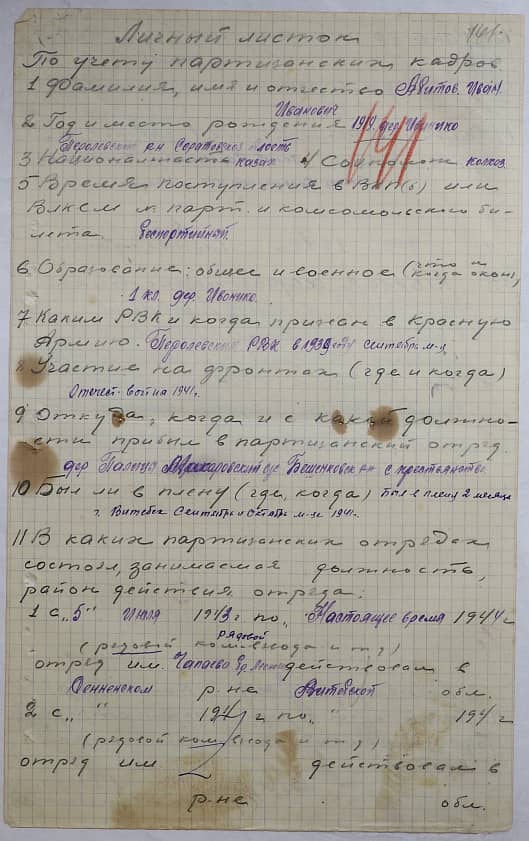 141.
Личный листок
По учету партизанских кадров
1 Фамилия, имя и отчество Авитов Иван
Иванович
2 Год и место рождения 1919. дер. Иванико
141
Перелевский р-н Саратовской области
3 Национальность казах 4 Соцполож колхоз.
5 Время поступления в ВКП(б) или
ВЛКСМ № парт. и комсомольского би-
лета беспартийный.
6 Образование: общее и военное (что и
когда окон),
1 кл. дер. Иванико.
7 Каким РВК и когда призван в красную
Армию. РВК в 1939 году сентябрь м-ц
8 Участие на фронтах (где и когда)
Отечест-война 1941г.
9 Откуда, когда и с какой должно-
сти прибыл в партизанский отряд.
дер с/с Бешенковск р-н с крестьянства.
10 Был ли в плену (где, когда) Был в плену 2 месяца
г. Витебск Сентябрь и Октябрь м-ц 1941г.
11 В каких партизанских отрядах
состоял, занимаемая должность,
район действия отряда:
1 с „5" Июля 1943 г по „Настоящее время 1944 г
рядовой
(рядовой ком. взвода и т д)
отряд им. Чапаева бр. действовал в
Сенненском р-не Витебской обл.
2 с „ " 194 г по „ " 194 г
(рядовой ком взвода и т д)
отряд им действовал в
р-не обл.